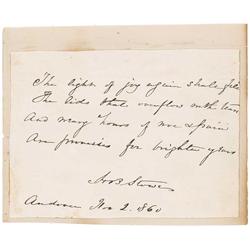 The light of joy again shall fill
The lids that overflow with tears
And weary hours of woe & pain
Are promises for brighter years
H B Stowe
Andover Nov 2. 1860